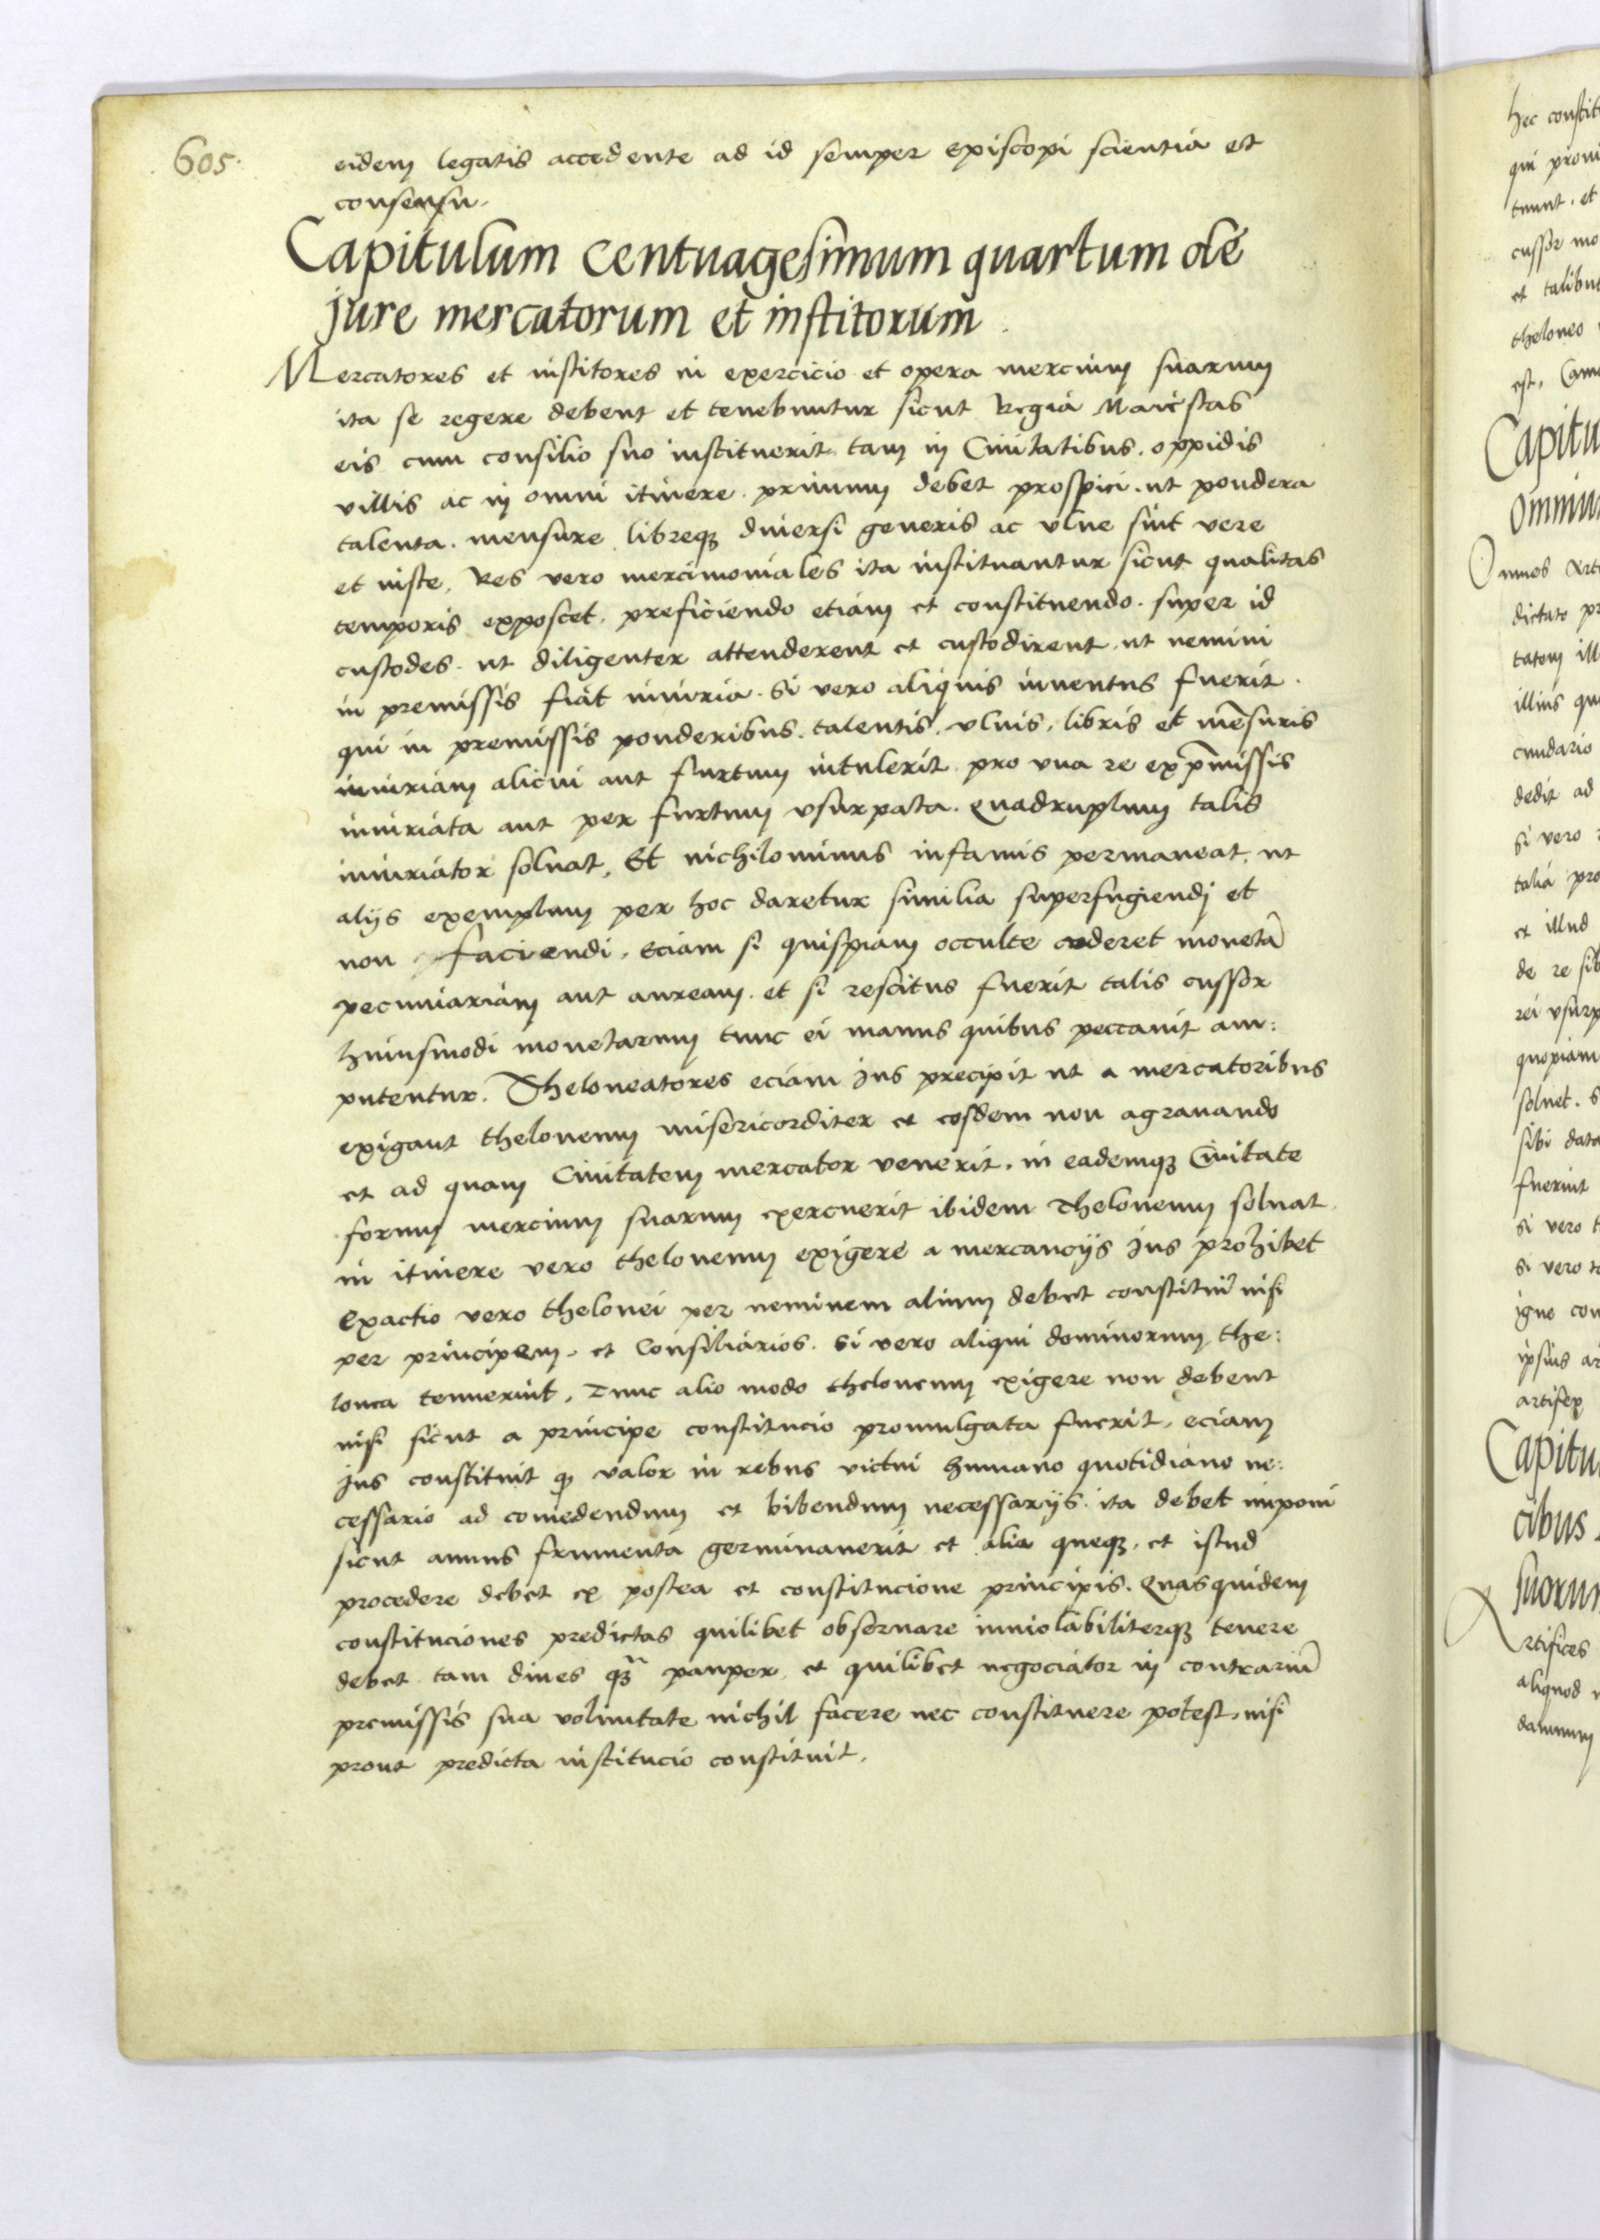 605.
eidem legatis accedente ad id semper Episcopi scientia et
consensu.
Capitulum centuagesimum quartum de
jure mercatorum et institorum
Mercatores et institores in exercicio et opera mercium suarum
ita se regere debent et tenebuntur sicut Regia Maiestas
eis cum consilio suo instituerit. tam in Ciuitatibus. oppidis
villis ac in omni itinere. primum debet prospici. ut pondera
talenta. mensure libreqꝫ diuersi generis ac vlne sint vere
et iuste. Res vero mercimoniales ita instituantur sicut qualitas
temporis exposcet. preficiendo etiam et constituendo. super id
custodes. ut diligenter attenderent et custodirent. ut nemini
in premissis fiat iniuria. Si vero aliquis inuentus fuerit.
qui in premissis ponderibus. talentis. vlnis. libris et mēsuris
iniuriam alicui aut furtum intulerit pro vna re ex p̄missis
iniuriata aut per furtum vsurpata. Quadruplum talis
iniuriator soluat. Et nichilominus infamis permaneat. ut
alijs exemplum per hoc daretur similia superfugiendj et
non faciendi. Eciam si quispiam occulte cuderet monetā
pecuniariam aut auream. et si rescitus fuerit talis cussor
huiusmodi monetarum tunc ei manus quibus peccauit am:
putentur. Theloneatores eciam Jus precipit ut a mercatoribus
exigant theloneum misericorditer et eosdem non agrauando
et ad quam Ciuitatem mercator venerit. in eademqꝫ Ciuitate
forum mercium suarum exercuerit ibidem Theloneum soluat.
in itinere vero theloneum exigere a mercancijs Jus prohibet
Exactio vero thelonei per neminem alium debet constitui nisi
per principem. et Consiliarios. Si vero aliqui dominorum the:
lonea tenuerint. Tunc alio modo theloneum exigere non debent
nisi sicut a principe constitucio promulgata fuerit. eciam
Jus constituit qꝫ valor in rebus victui humano quotidiano ne:
cessario ad comedendum et bibendum necessarijs. ita debet imponi
sicut annus frumenta germinauerit et alia queqꝫ. et istud
procedere debet ex postea et constitucione principis. Quasquidem
constituciones predictas quilibet obseruare inuiolabiliterqꝫ tenere
debet tam diues qꝫ̄ pauper. et quilibet negociator in contrariū
premissis sua voluntate nichil facere nec constituere potest. nisi
prout predicta institucio constituit.
hec constit
tuunt. et
cussor mo
et talibus
theloneo
est.
Capitu
omnium
Omnes Art
dictate pr
tatem ill
illius qu
dedit ad
si vero
talia pro
et illud
de re sib
rei vsurp
quopiam
soluet. S
sibi data
fuerint
si vero t
si vero
igne con
ipsius ar
artifex
Capitu
cibus
suorum
Artifices
aliquod
damnum